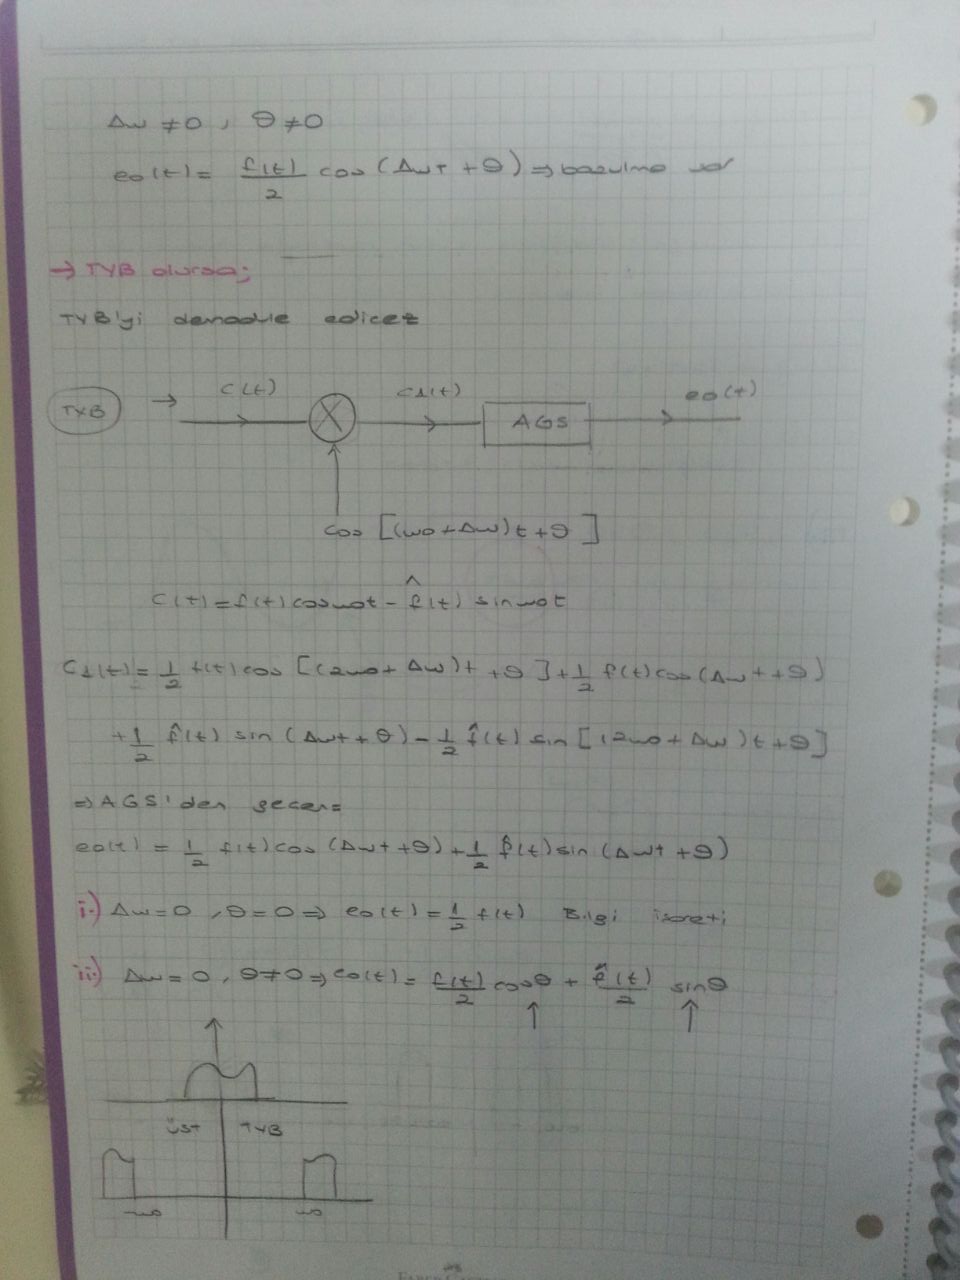 Δω ≠0 , θ ≠0
eo(t) = f(t)/2 cos (Δωt + θ) ⇒ bozulma var
→ TYB olursa;
TYB'yi demodule edicez
TYB → c(t) X c1(t) AGS eo(t)
cos [(ωo+Δω)t+θ]
c(t) = f(t) cosωot - f̂(t) sinωot
c1(t) = 1/2 f(t) cos [(2ωo+Δω)t +θ] + 1/2 f(t) cos (Δωt +θ)
+ 1/2 f̂(t) sin (Δωt + θ) - 1/2 f̂(t) sin [(2ωo+Δω)t+θ]
⇒ AGS'den geçerse
eo(t) = 1/2 f(t) cos (Δωt +θ) + 1/2 f̂(t) sin (Δωt +θ)
i.) Δω=0 , θ=0 ⇒ eo(t) = 1/2 f(t) Bilgi isareti
ii.) Δω=0 , θ≠0 ⇒ eo(t) = f(t)/2 cosθ + f̂(t)/2 sinθ
üst TYB
-ωo ωo